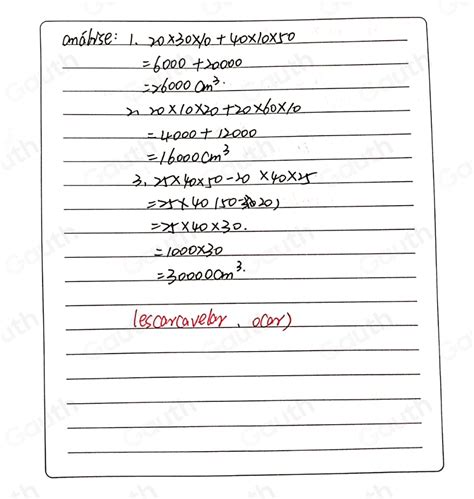 análise: 1. 20×30×10 + 40×10×50
= 6000 + 20000
= 26000 cm³.
2. 20×10×20 + 20×60×10
= 4000 + 12000
= 16000 cm³
3. 25×40×50 - 20 ×40×25
= 25×40 (50-20)
= 25×40×30.
= 1000×30
= 30000 cm³.
(escarcavelar, ocar)
Gauth